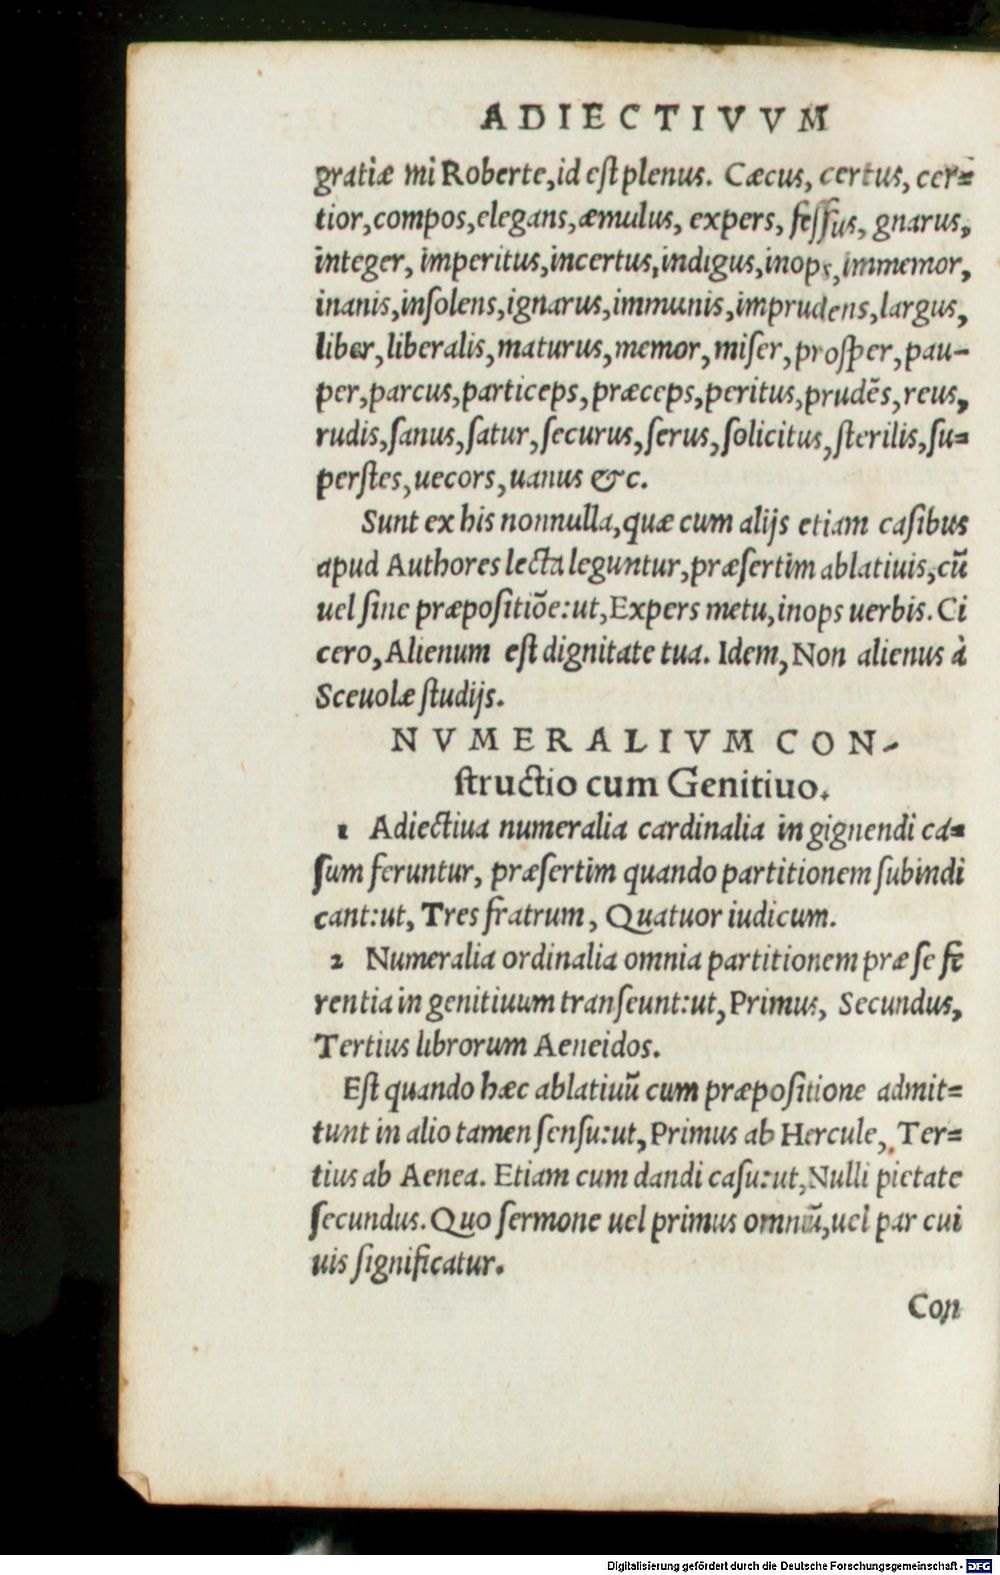 ADIECTIVVM
gratiæ mi Roberte, id eſt plenus. Cæcus, certus, cer=
tior, compos, elegans, æmulus, expers, feſſus, gnarus,
integer, imperitus, incertus, indigus, inops, immemor,
inanis, inſolens, ignarus, immunis, imprudens, largus,
liber, liberalis, maturus, memor, miſer, proſper, pau-
per, parcus, particeps, præceps, peritus, prudẽs, reus,
rudis, ſanus, ſatur, ſecurus, ſerus, ſolicitus, ſterilis, ſu=
perſtes, uecors, uanus &c.
Sunt ex his nonnulla, quæ cum alijs etiam caſibus
apud Authores lecta leguntur, præſertim ablatiuis, cũ
uel ſine præpoſitiõe: ut, Expers metu, inops uerbis. Ci
cero, Alienum eſt dignitate tua. Idem, Non alienus à
Sceuolæ ſtudijs.
NVMERALIVM CON-
ſtructio cum Genitiuo.
1 Adiectiua numeralia cardinalia in gignendi ca=
ſum feruntur, præſertim quando partitionem ſubindi
cant: ut, Tres fratrum, Quatuor iudicum.
2 Numeralia ordinalia omnia partitionem præ ſe fe
rentia in genitiuum tranſeunt: ut, Primus, Secundus,
Tertius librorum Aeneidos.
Eſt quando hæc ablatiuũ cum præpoſitione admit=
tunt in alio tamen ſenſu: ut, Primus ab Hercule, Ter=
tius ab Aenea. Etiam cum dandi caſu: ut, Nulli pietate
ſecundus. Quo ſermone uel primus omniũ, uel par cui
uis ſignificatur.
Con
Digitalisierung gefördert durch die Deutsche Forschungsgemeinschaft - DFG